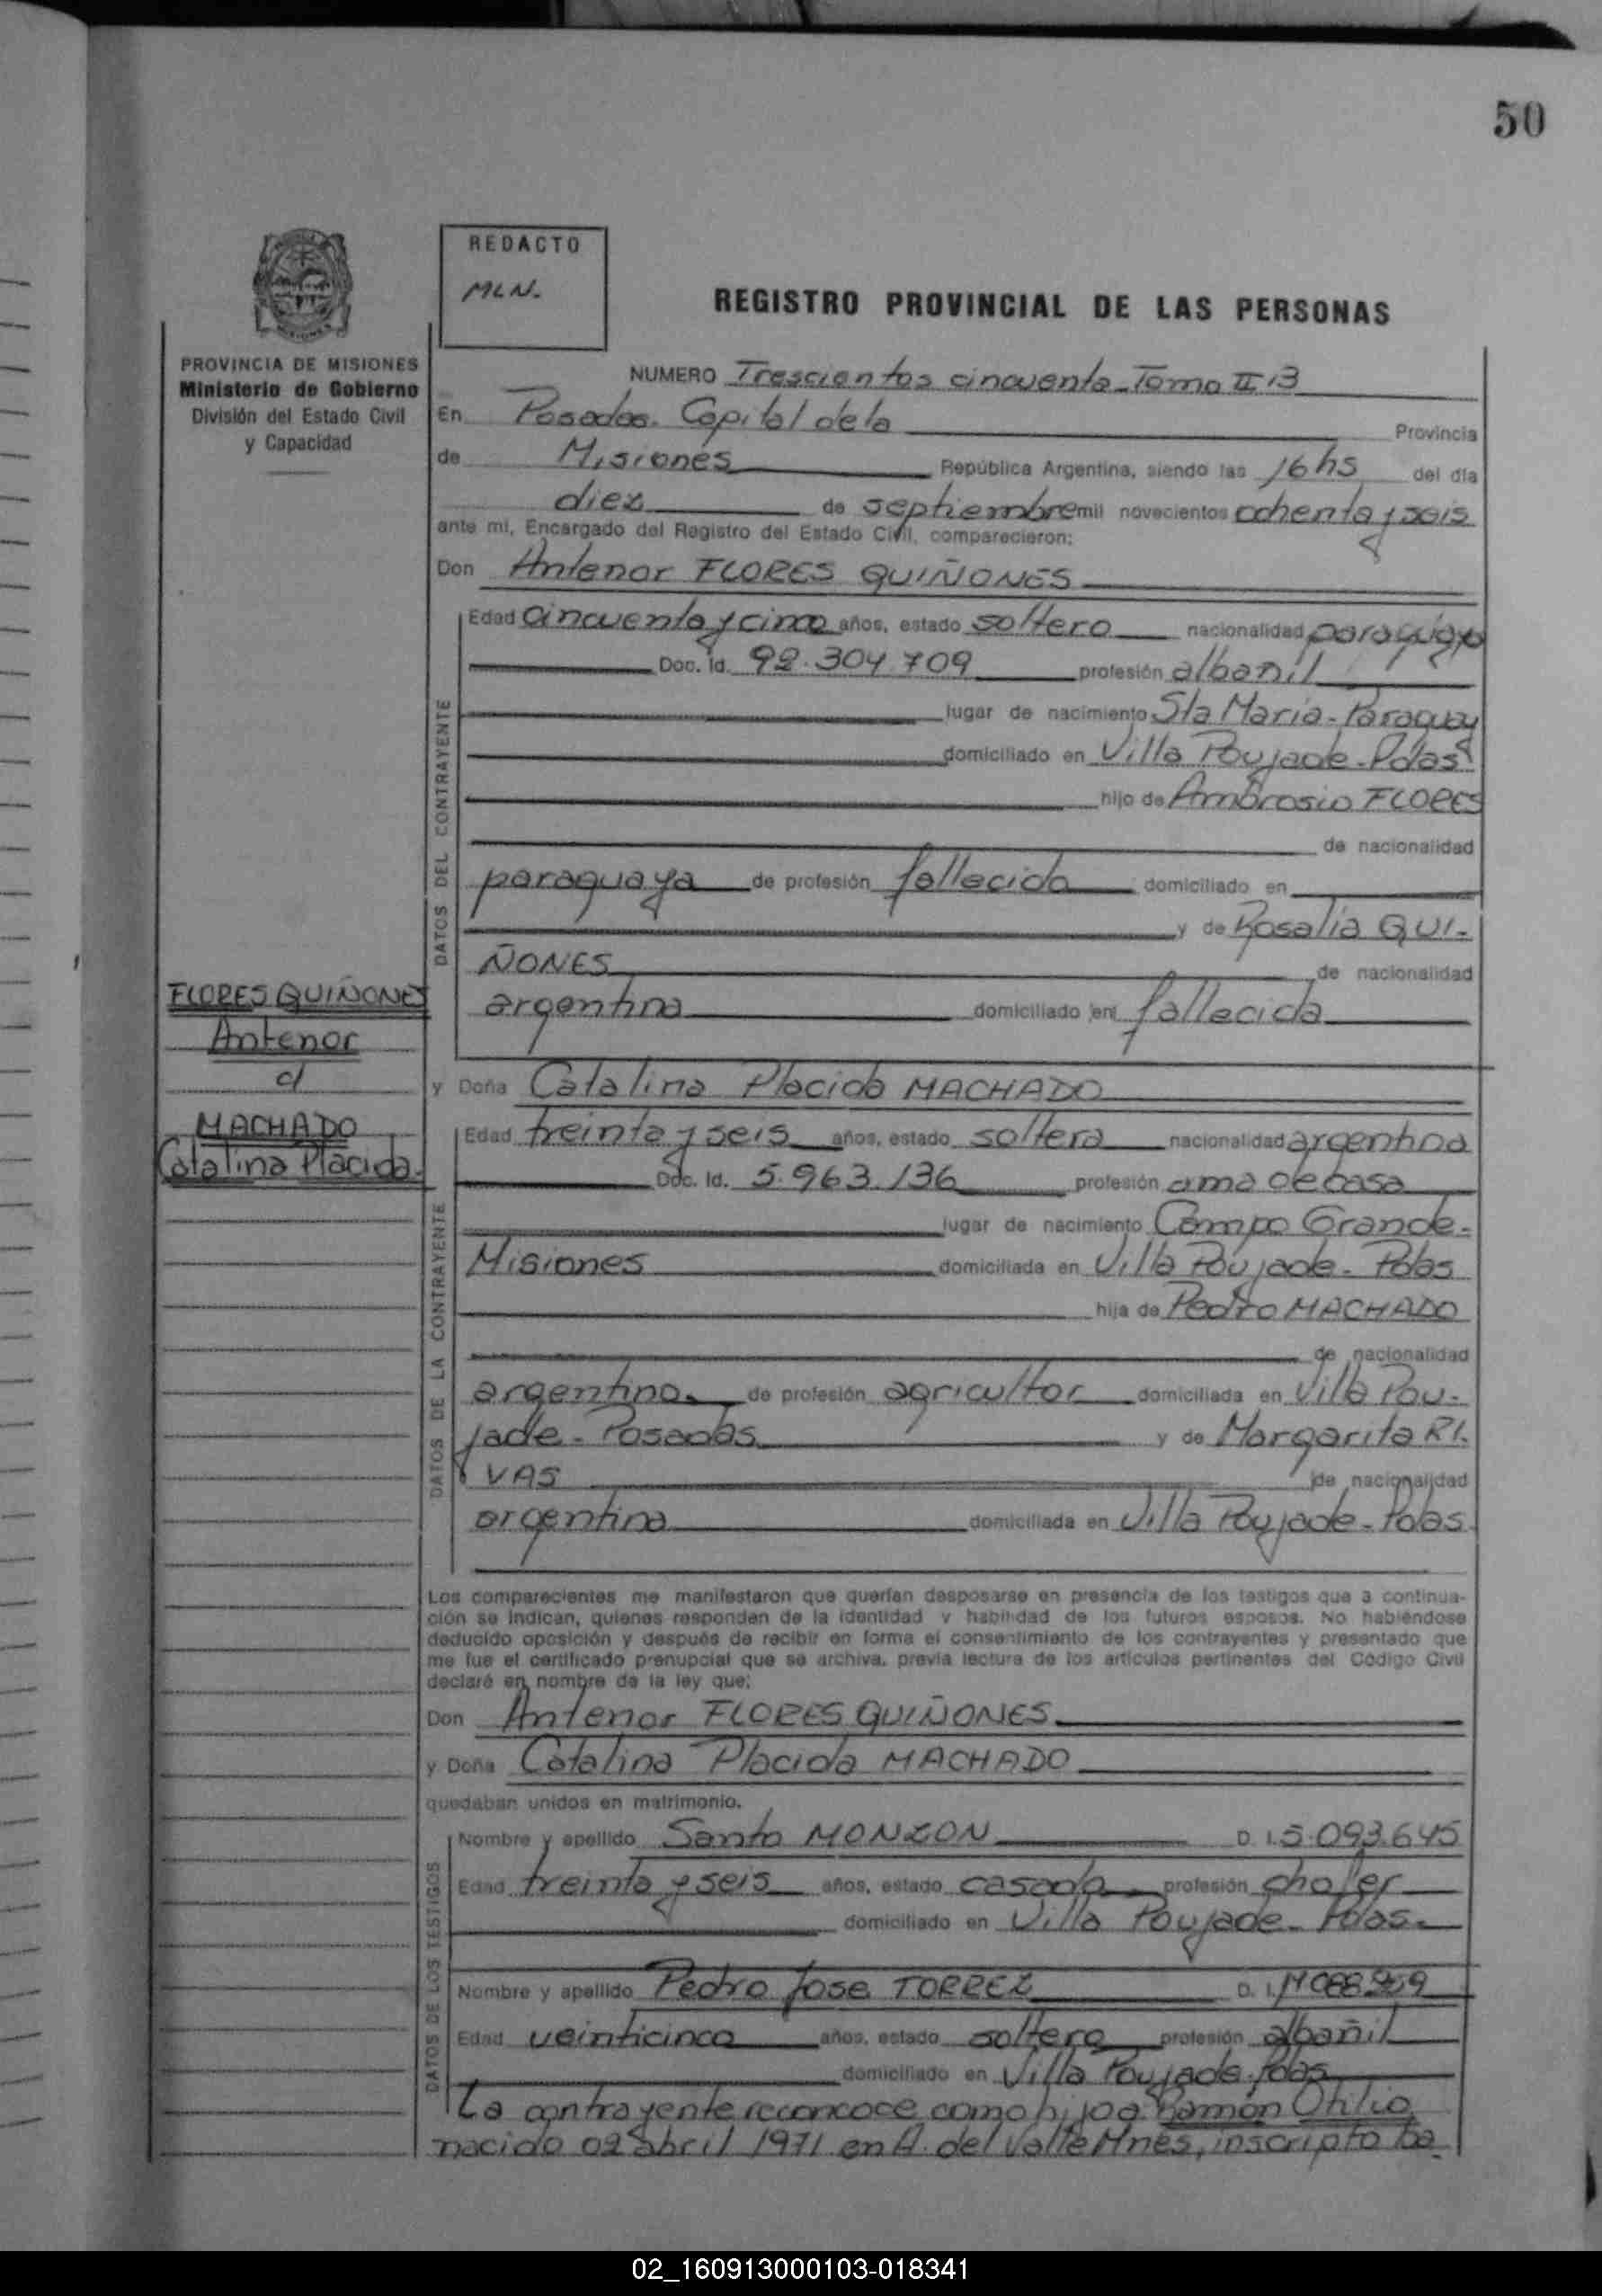 50
REDACTO
MLN.
REGISTRO PROVINCIAL DE LAS PERSONAS
PROVINCIA DE MISIONES
Ministerio de Gobierno
División del Estado Civil
y Capacidad
NUMERO Trescientos cincuenta - Tomo II 13
En Posadas. Capital de la Provincia
de Misiones República Argentina, siendo las 16 hs del día
diez de septiembre mil novecientos ochenta y seis
ante mí, Encargado del Registro del Estado Civil, comparecieron:
Don Antenor FLORES QUIÑONES
Edad cincuenta y cinco años, estado soltero nacionalidad paraguayo
Doc. Id. 92.304.709 profesión albañil
lugar de nacimiento Sta María - Paraguay
domiciliado en Villa Poujade - Pdas
hijo de Ambrosio FLORES
de nacionalidad
paraguaya de profesión fallecido domiciliado en
y de Rosalía QUI-
ÑONES de nacionalidad
argentina domiciliado en fallecida
DATOS DEL CONTRAYENTE
FLORES QUIÑONES
Antenor
c/
MACHADO
Catalina Placida.
y Doña Catalina Placida MACHADO
Edad treinta y seis años, estado soltera nacionalidad argentina
Doc. Id. 5.963.136 profesión ama de casa
lugar de nacimiento Campo Grande -
Misiones domiciliada en Villa Poujade - Pdas
hija de Pedro MACHADO
de nacionalidad
argentino. de profesión agricultor domiciliada en Villa Pou-
jade - Posadas y de Margarita RI-
VAS de nacionalidad
argentina domiciliada en Villa Poujade - Pdas.
DATOS DE LA CONTRAYENTE
Los comparecientes me manifestaron que querían desposarse en presencia de los testigos que a continua-
ción se indican, quienes responden de la identidad y habilidad de los futuros esposos. No habiéndose
deducido oposición y después de recibir en forma el consentimiento de los contrayentes y presentado que
me fue el certificado prenupcial que se archiva, previa lectura de los artículos pertinentes del Código Civil
declaré en nombre de la ley que:
Don Antenor FLORES QUIÑONES
y Doña Catalina Placida MACHADO
quedaban unidos en matrimonio.
Nombre y apellido Santo MONZON D. I. 5.093.645
Edad treinta y seis años, estado casado profesión chofer
domiciliado en Villa Poujade - Pdas.
Nombre y apellido Pedro Jose TORREZ D. I.
Edad veinticinco años, estado soltero profesión albañil
domiciliado en Villa Poujade - Pdas
DATOS DE LOS TESTIGOS
La contrayente reconcoce como hijo a Ramón Otilio,
nacido 02 abril 1971 en A. del Valle Mnes, inscripto ba
02_160913000103-018341